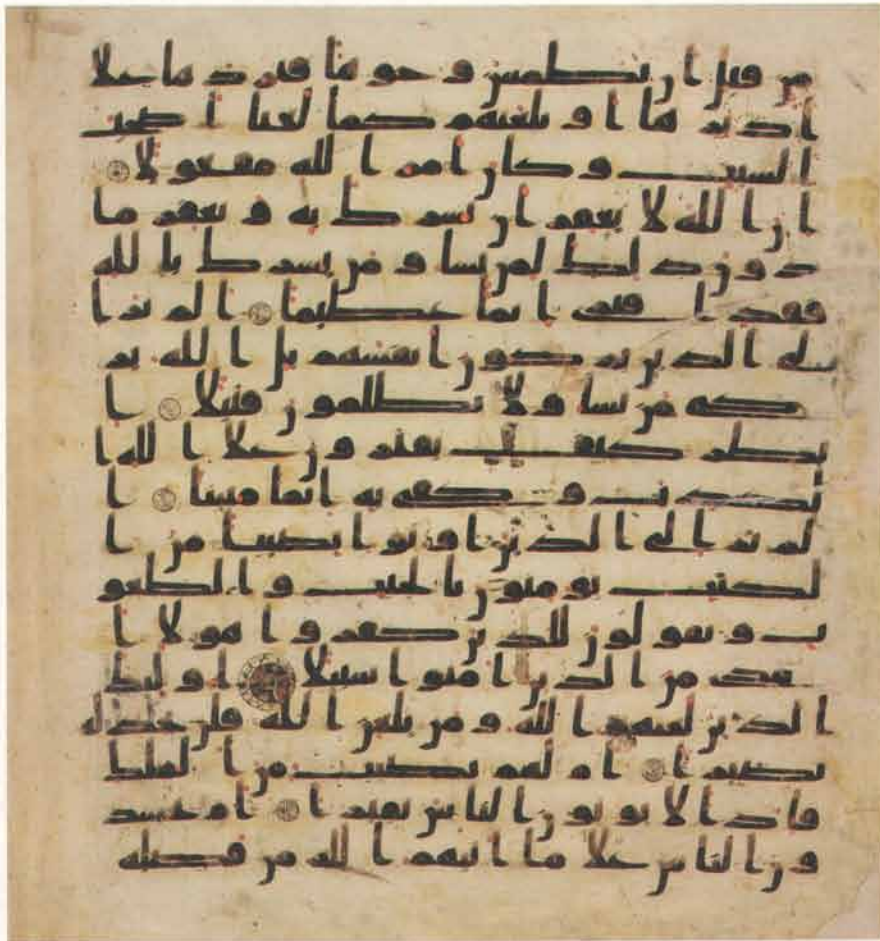 من قبل ان نطمس وجوها فنردها علا
ادبرها او نلعنهم كما لعنا اصحب
السبت وكان امر الله مفعولا
ان الله لا يغفر ان يشرك به و يغفر ما
دون ذلك لمن يشا و من يشرك بالله
فقد افترى اثما عظيما الم تر ا
لى الذين يزكون انفسهم بل الله يز
كى من يشا ولا يظلمون فتيلا ا
نظر كيف يفترون علا الله ا
لكذب و كفى به اثما مبينا ا
لم تر الى الذين اوتوا نصيبا من ا
لكتب يومنون بالجبت و الطغو
ت و يقولون للذين كفروا هولا ا
هدى من الذين امنوا سبيلا اوليك
الذين لعنهم الله و من يلعن الله فلن تجد له
نصيرا ام لهم نصيب من الملك
فاذا لا يوتون الناس نقيرا ام يحسد
ون الناس علا ما اتيهم الله من فضله